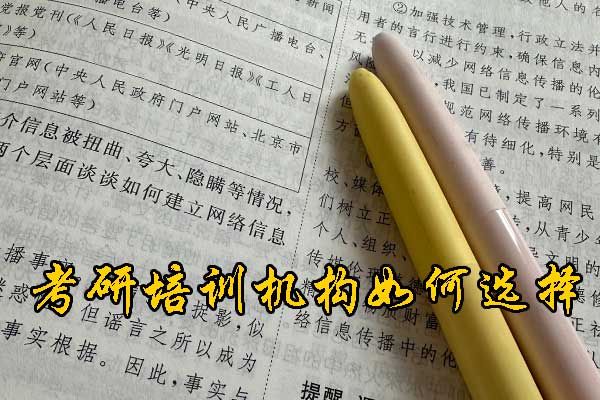 新闻
党报党刊(《人民日报》《光明日报》《工人日
报》等)
府官网(中央人民政府门户网站、北京市
门户网站等)
介信息被扭曲、夸大、隐瞒等情况,
两个层面谈谈如何建立网络信息
播事
但谣言之所以成为
事实根据。因此,事实与
②加强技术管理,行政立法并
用者的言行进行约束,确保信息内
以减少网络信息传播的伦
我国已制定了一系列
规范网络传播环境
有待细化,特别是
善。
校、媒体
提高网民
们树立正
从青少年
个人、组织、
传媒伦理
络信息传播中的伦
提醒
考研培训机构如何选择